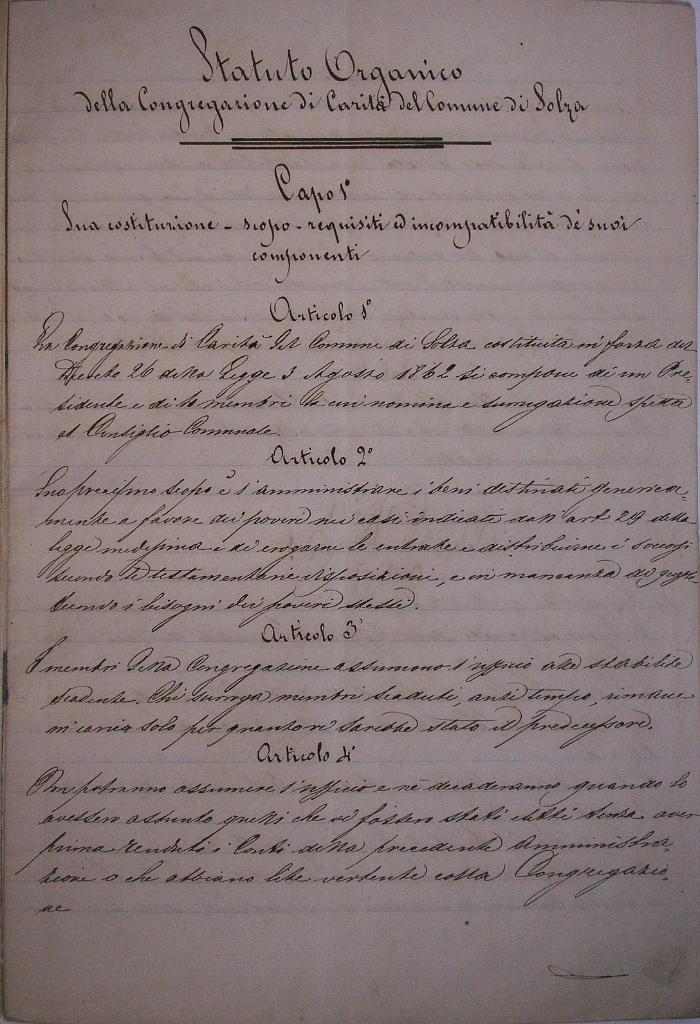 Statuto Organico
della Congregazione di Carità del Comune di Solza
Capo 1°
Sua costituzione - scopo - requisiti ed incompatibilità de' suoi
componenti
Articolo 1°
La Congregazione di Carità del Comune di Solza costituita in forza del
Decreto 26 della Legge 3 Agosto 1862 si compone di un Pre-
sidente e di 4 membri la cui nomina e surrogazione spetta
al Consiglio Comunale.
Articolo 2°
Suo precipuo scopo è l'amministrare i beni destinati generica-
mente a favore dei poveri nei casi indicati dall'art 29 della
legge medesima e di erogarne le entrate e distribuirne i soccorsi
secondo le testamentarie disposizioni, e in mancanza di queste
secondo i bisogni dei poveri stessi.
Articolo 3°
I membri della Congregazione assumono l'ufficio alle stabilite
scadenze. Chi surroga membri scaduti, anzi tempo, rimane
in carica solo per quanto vi sarebbe stato il predecessore.
Articolo 4°
Non potranno assumere l'ufficio e ne decaderanno quando lo
avessero assunto quelli che vi fossero stati eletti senza aver
prima renduti i Conti della precedente Amministra-
zione o che abbiano lite vertente colla Congregazio-
ne